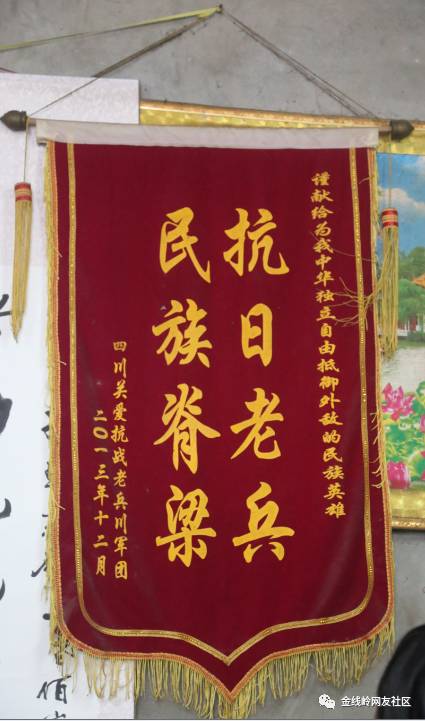 谨献给为我中华独立自由抵御外敌的民族英雄
抗日老兵
民族脊梁
四川关爱抗战老兵川军团
二〇一三年十二月
金线岭网友社区